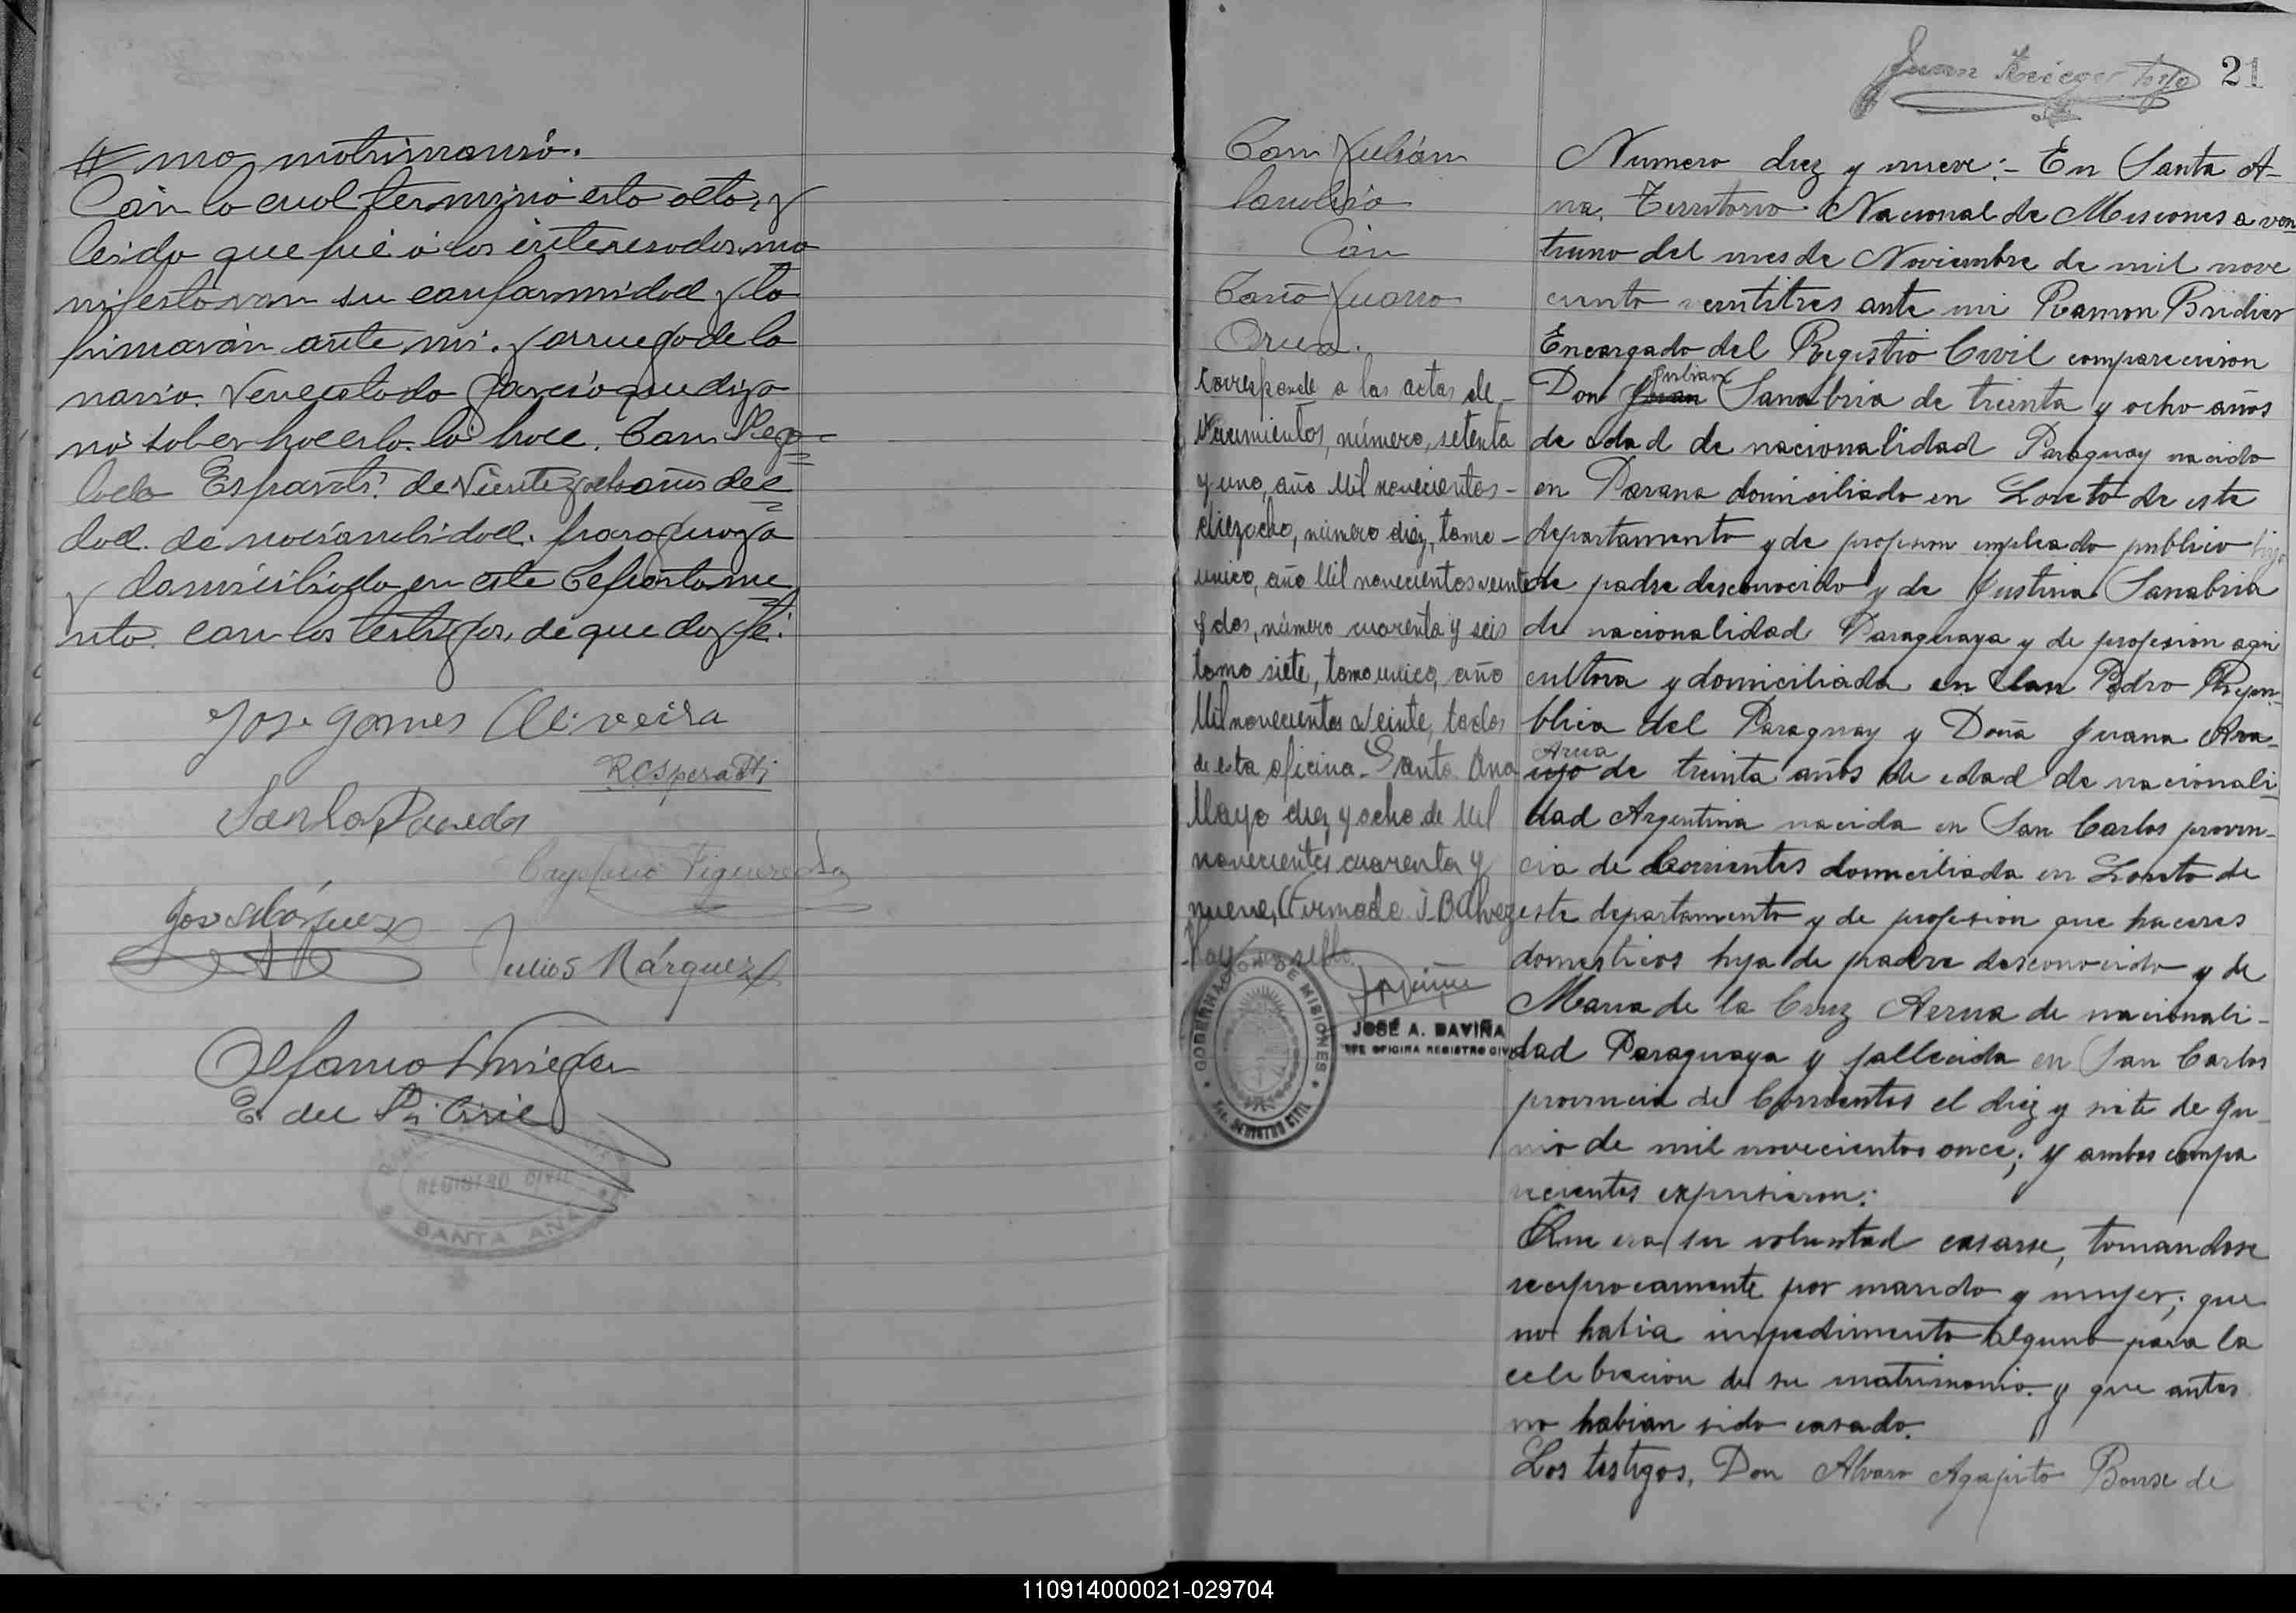 mo matrimonio.
Con lo cual termino esta acta, y
leido que fué á los interesados, ma
nifestaron su conformidad y la
firmaron ante mi. y a ruego de la
novia. que dijo
no saber hacerlo. lo hace. Don
Esparati. de Viente y ocho años de e
dad. de nacionalidad. paraguaya
y domiciliado en este Departame
nto. con los testigos, de que doy fé.
Jose Gomes Oliveira
R Esperatti
Figueredo
José Márquez
Julios Márquez
E. del R. Civil
REGISTRO CIVIL
SANTA ANA
Juan Krieger hijo 21
Don Julián
Sanabria
Con
Doña Juana
Arua.
Corresponde a las actas de
Nacimientos, número, setenta
y uno, año Mil novecientos -
diezocho, número diez, tomo -
unico, año Mil novecientos veinte
y dos, número cuarenta y seis
tomo siete, tomo unico, año
Mil novecientos veinte, todos
de esta oficina - Santa Ana
Mayo diez y ocho de Mil
novecientos cuarenta y
nueve, (Firmado J. B Alvez
Hay un sello.
GOBERNACION DE MISIONES
REGISTRO CIVIL
JOSÉ A. DAVIÑA
JEFE OFICINA REGISTRO CIVIL
Numero diez y nueve:- En Santa A-
na. Territorio Nacional de Misiones a vein
tiuno del mes de Noviembre de mil nove
ciento veintitres ante mi Ramon Bridier
Encargado del Registro Civil comparecieron
Don Juan Julian Sanabria de treinta y ocho años
de edad de nacionalidad Paraguay nacido
en Parana domiciliado en Loreto de este
departamento y de profesion empleado publico hijo
de padre desconocido y de Justina Sanabria
de nacionalidad Paraguaya y de profesion agri
cultora y domiciliada en San Pedro Repu-
blica del Paraguay y Doña Juana Ara-
ujo Arua de treinta años de edad de nacionali
dad Argentina nacida en San Carlos provin-
cia de Corrientes domiciliada en Loreto de
este departamento y de profesion que haceres
domesticos hija de padre desconocido y de
Maria de la Cruz Arrua de nacionali-
dad Paraguaya y fallecida en San Carlos
provincia de Corrientes el diez y siete de Ju-
nio de mil novecientos once; y ambos compa
recientes expusieron:
Que era su voluntad casarse, tomandose
reciprocamente por marido y mujer; que
no habia impedimento alguno para la
celebracion de su matrimonio. y que antes
no habian sido casado.
Los testigos, Don Alvaro Agapito Bouse de